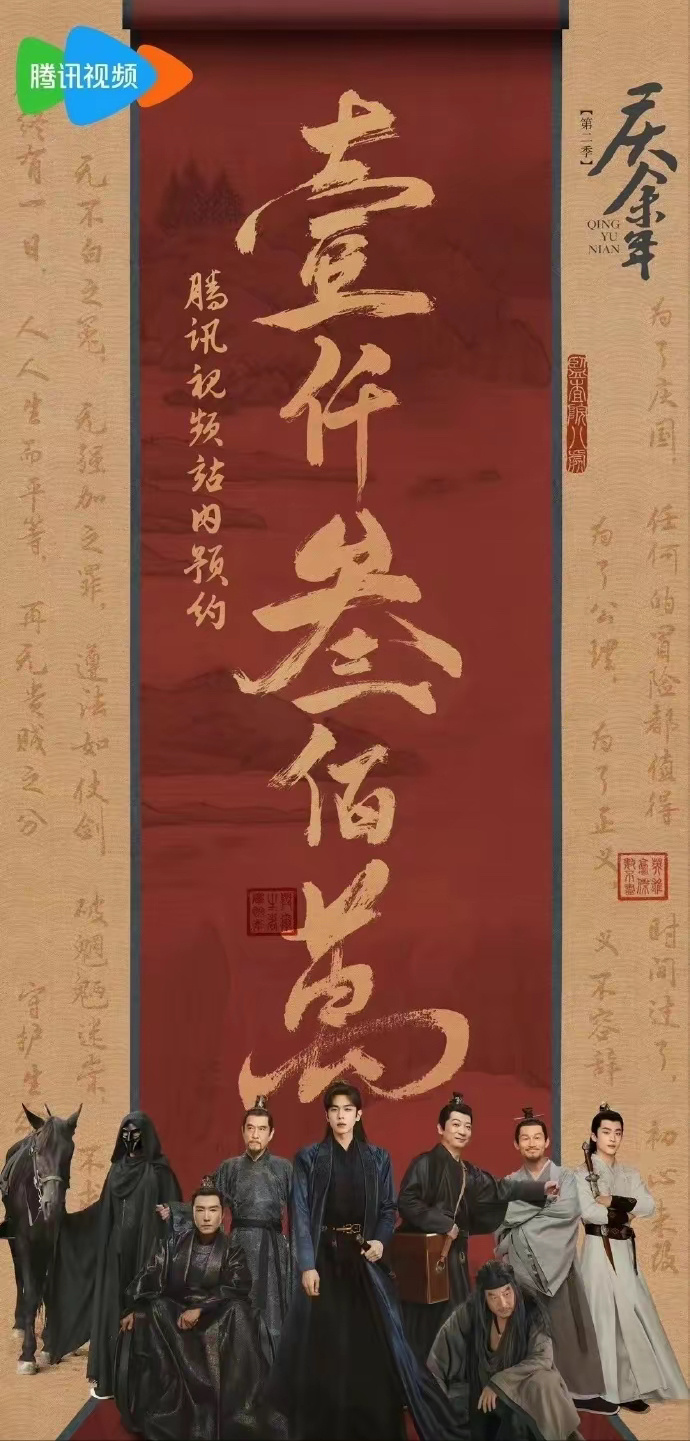 腾讯视频
庆余年
【第二季】
QING
YU
NIAN
壹仟叁佰萬
腾讯视频站内预约
监查院八处
时间过了，初心未改
为了庆国，任何的冒险都值得
为了公理，为了正义，义不容辞
无不白之冤，无强加之罪，遵法如仗剑，破魍魉迷祟，不求
终有一日，人人生而平等，再无贵贱之分
守护生